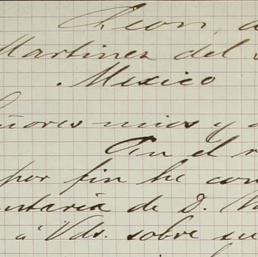 Leon, a
Martinez del
Mexico
Señores mios y a
En el
por fin he con
entaria de D.
a Vds. sobre su